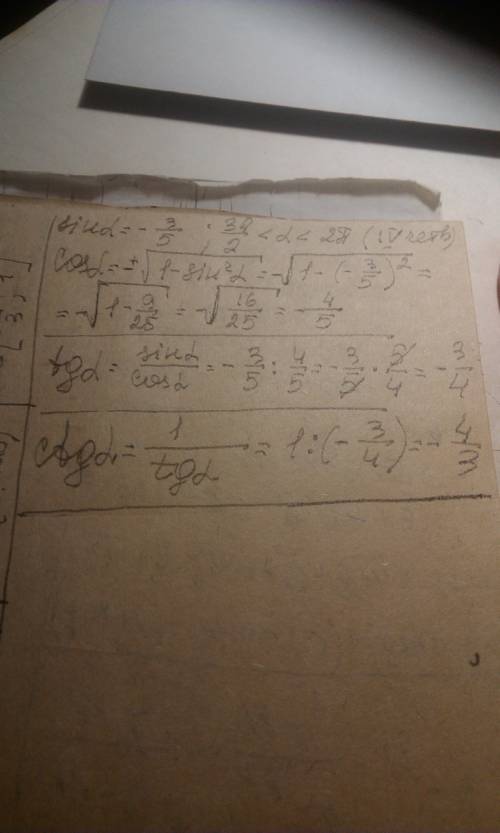 sinα = -3/5 ; 3π/2 < α < 2π (IV четв)
cosα = ±√(1-sin²α) = -√(1-(-3/5)²) =
= -√(1-9/25) = -√(16/25) = 4/5
tgα = sinα/cosα = -3/5 : 4/5 = -3/5 · 5/4 = -3/4
ctgα = 1/tgα = 1:(-3/4) = -4/3